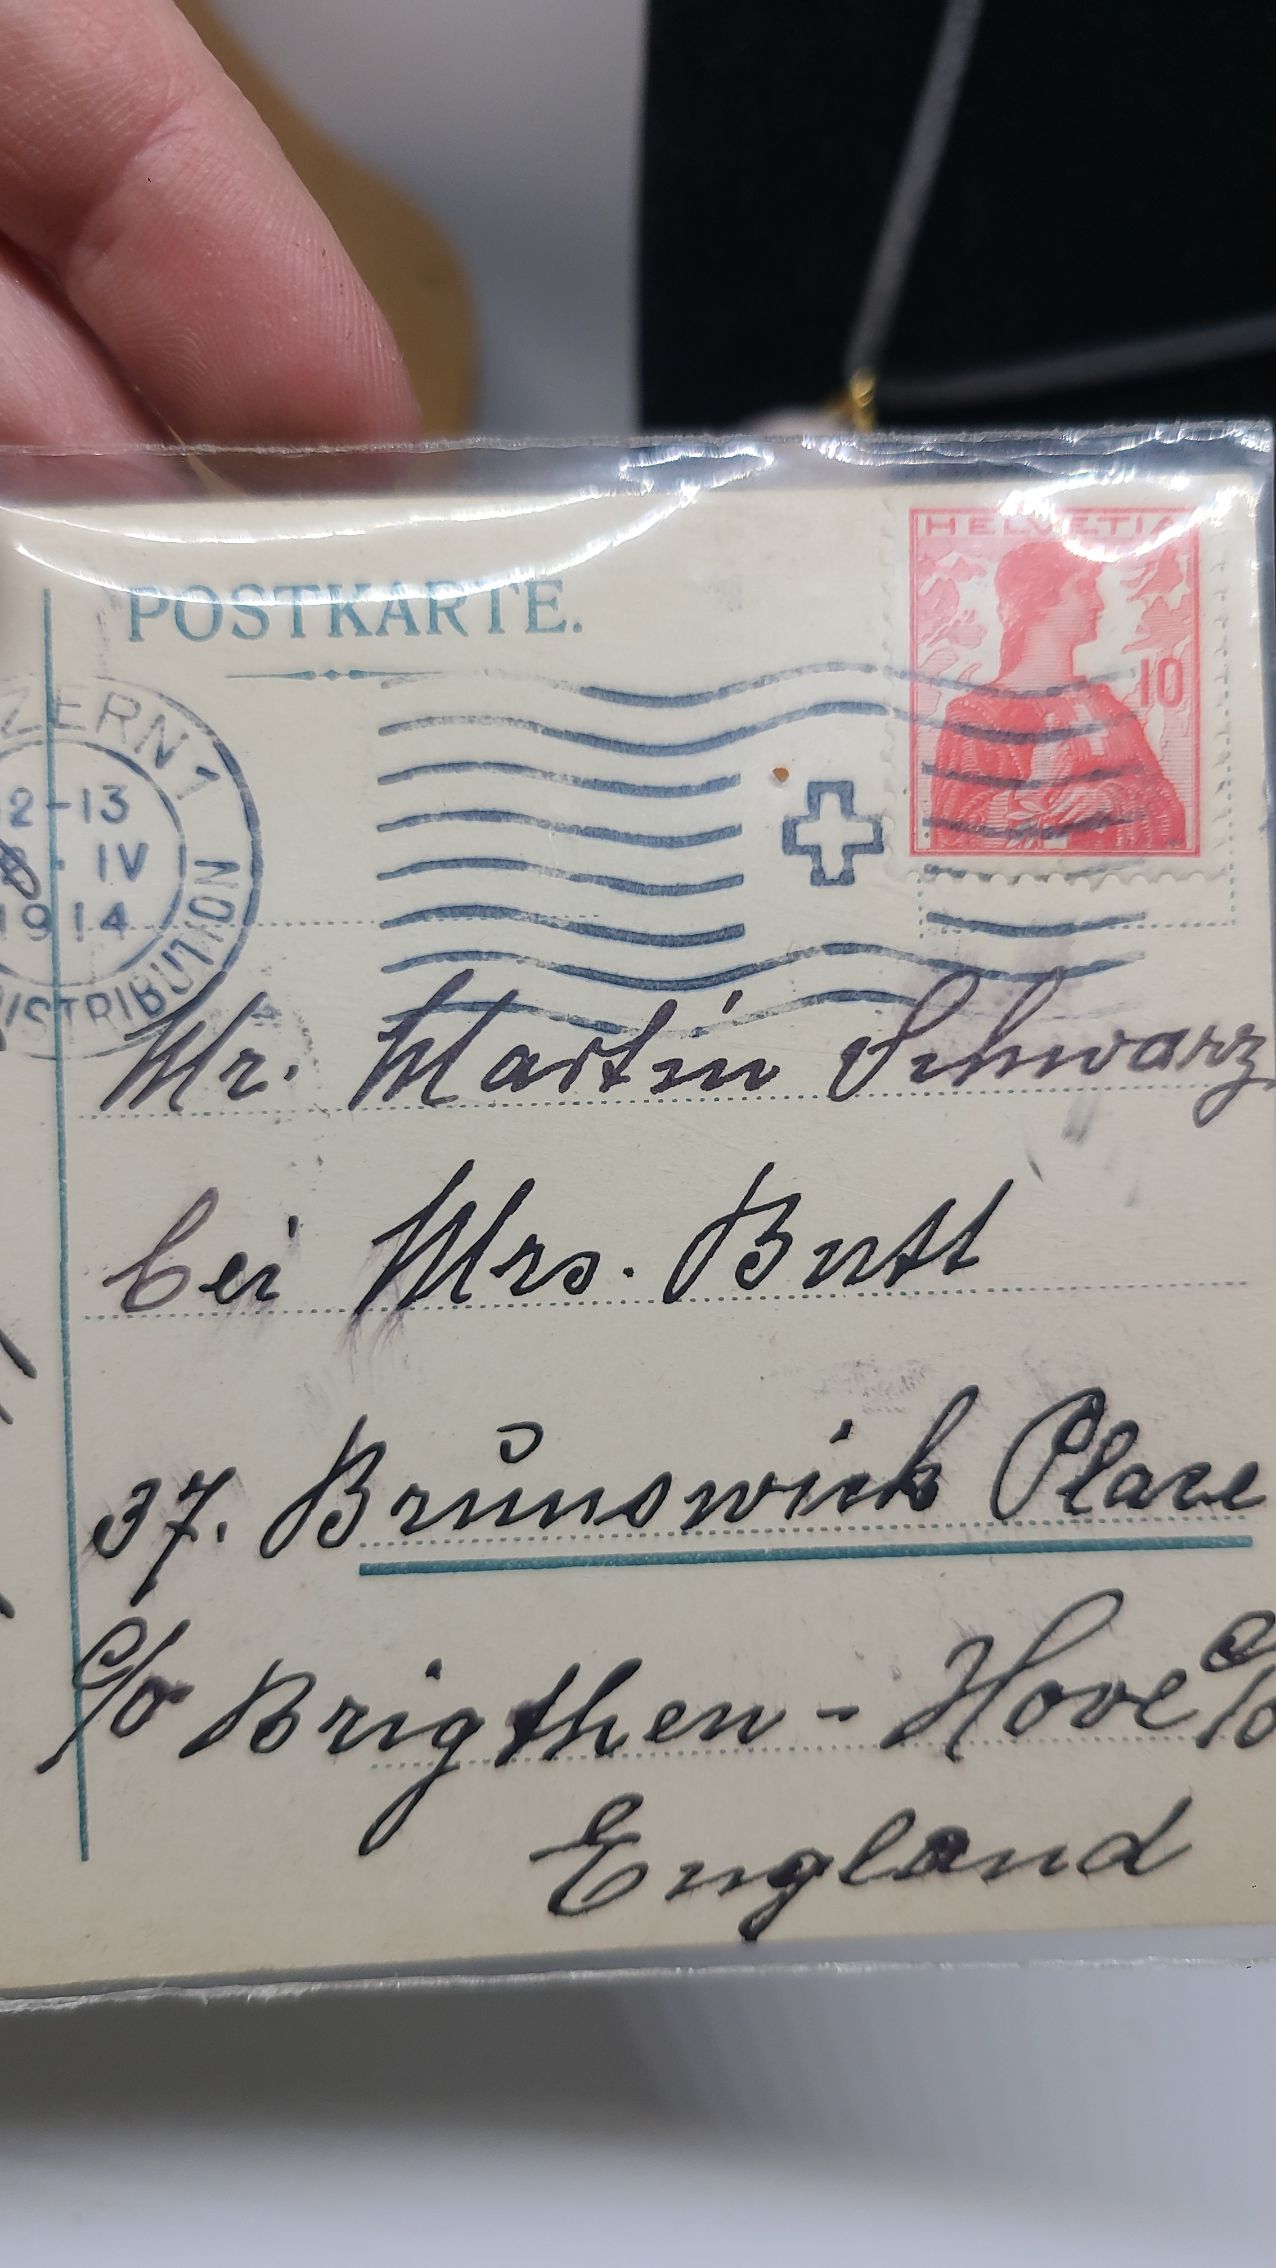 POSTKARTE.
HELVETIA
10
ZERN 1
2-13
IV
1914
DISTRIBUTION
Mr. Martin Schwarz
bei Mrs. Butt
37. Brunswick Place
c/o Brigthen - Hove c/o
England